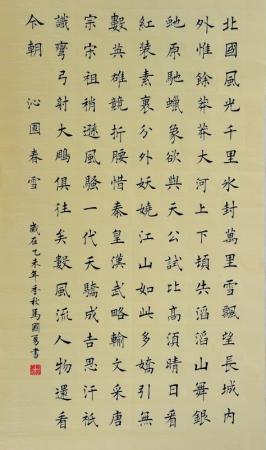 北國風光千里氷封萬里雪飄望長城内
外惟餘莽莽大河上下頓失滔滔山舞銀
虵原馳蠟象欲與天公試比高須晴日看
紅裝素裹分外妖嬈江山如此多嬌引無
數英雄競折腰惜秦皇漢武略輸文采唐
宗宋祖稍遜風騷一代天驕成吉思汗祇
識彎弓射大鵰俱往矣數風流人物還看
今朝 沁園春雪
歲在乙未年季秋馬國勇書